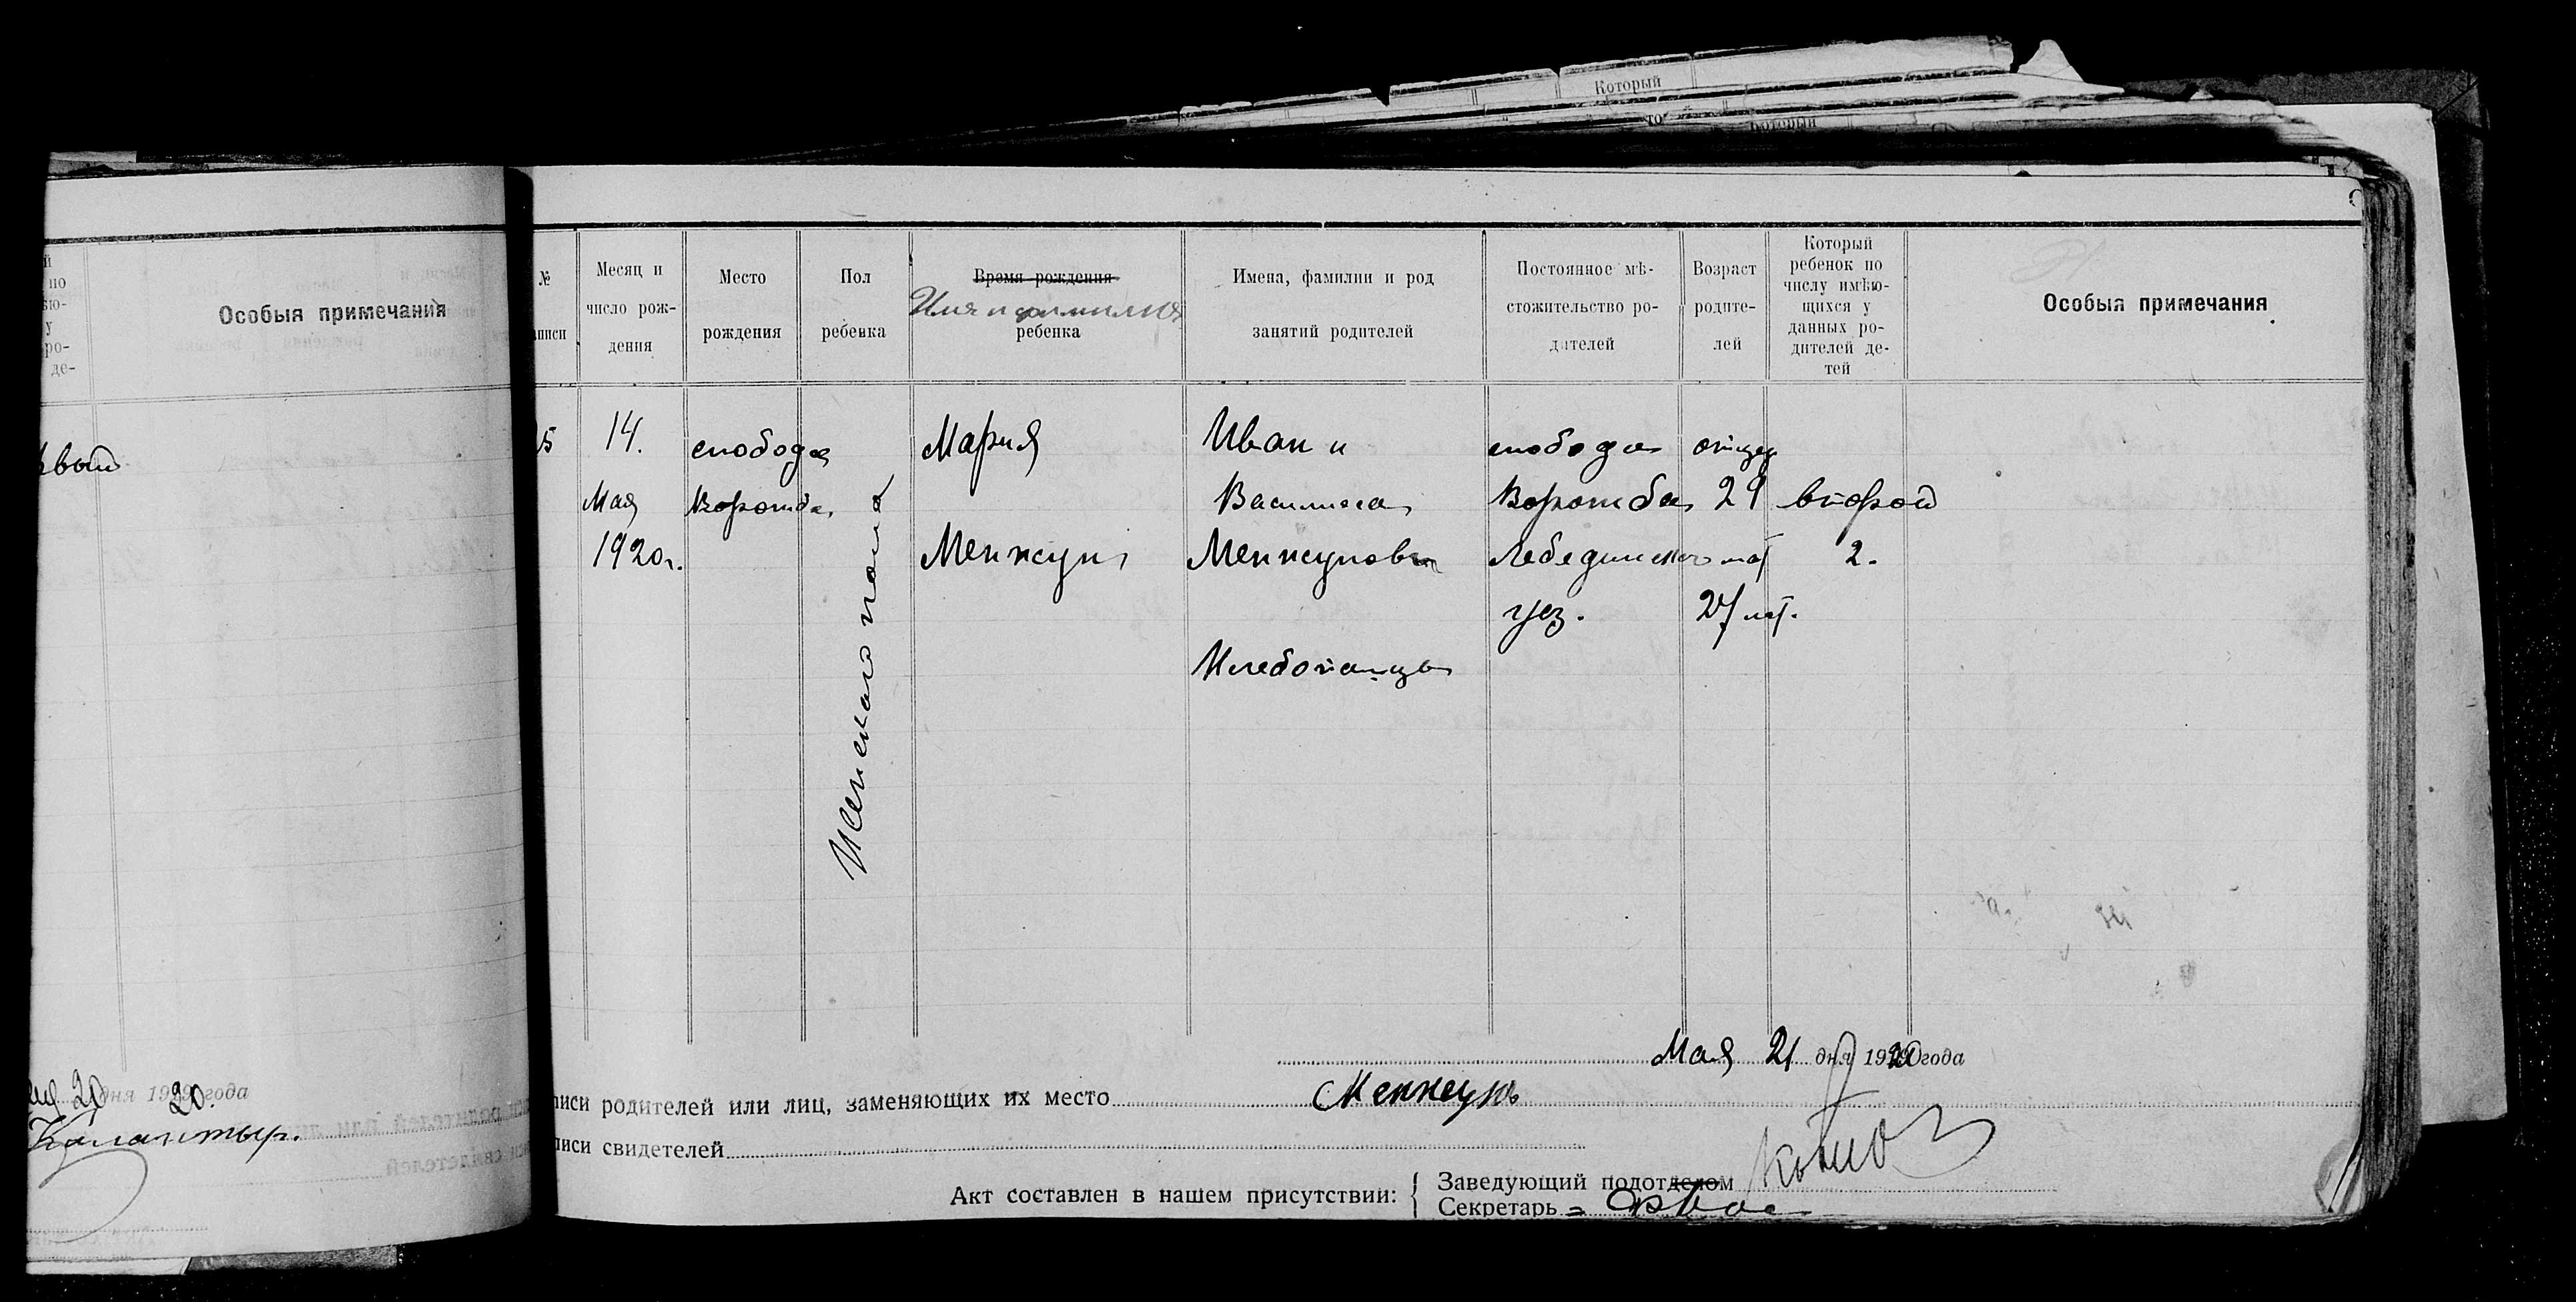 Который
то
Который
й
по
ѣю-
у
ро-
де-
Особыя примечания
рвый
20 дня 19 20. года
Калантыр.
№
писи
Месяц и
число рож-
дения
Место
рождения
Пол
ребенка
Время рождения
Имя и фамилия
ребенка
Имена, фамилии и род
занятий родителей
Постоянное мѣ-
стожительство ро-
дителей
Возраст
родите-
лей
Который
ребенок по
числу имѣю-
щихся у
данных ро-
дителей де-
тей
Особыя примечания
5
14.
Мая
1920г.
слобода
Ворожба
Женскаго пола
Мария
Иван и
Василиса
слобода
Ворожба
Лебединскаго
уез.
отцу
29
мат
27 лет.
второй
2.
Хлебопашцы
Мая 21 дня 1920 года
писи родителей или лиц, заменяющих их место
писи свидетелей
Акт составлен в нашем присутствии:
Заведующий подотделом
Секретарь